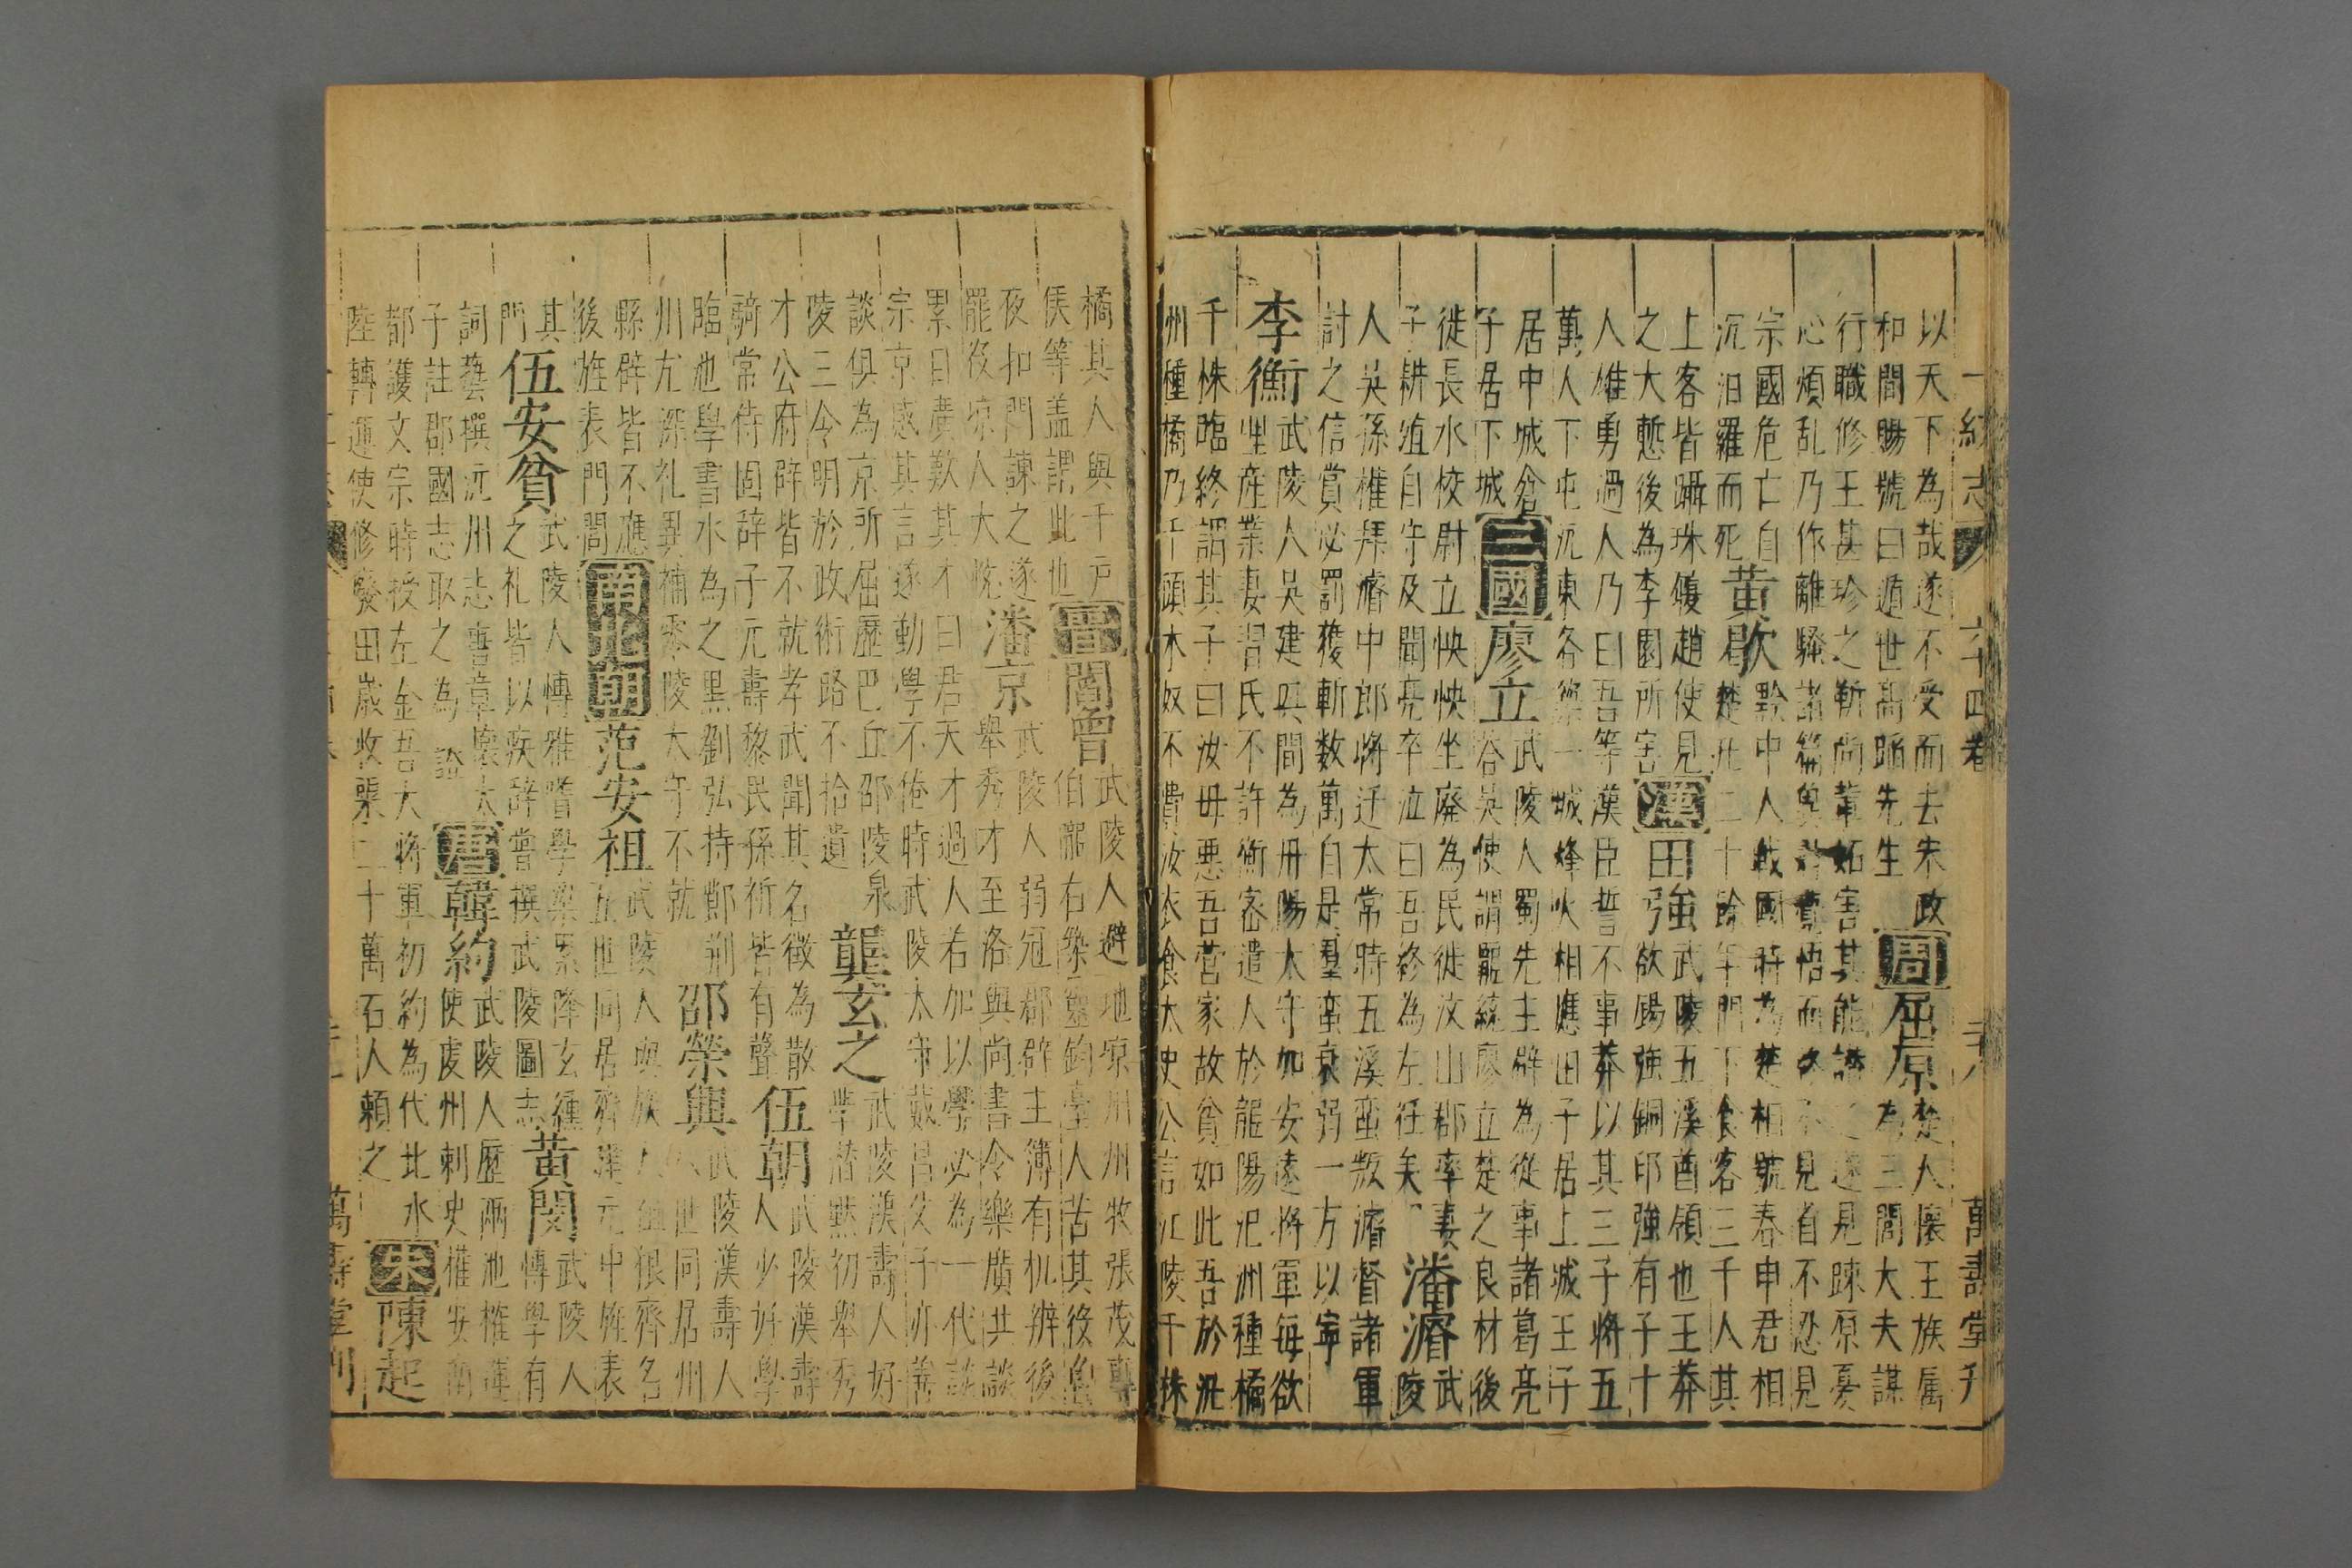 一統志 六十四卷 二十八 萬壽堂刊
以天下為哉遂不受而去宋政
和間賜號曰遁世高蹈先生
周 屈原
楚人懷王族属
為三閭大夫謀
行職修王甚珍之靳尚輩妬害其能譖之遂見踈原憂
心煩乱乃作離騷諸篇與悟而不見省不忍見
宗國危亡自
沉汨羅而死
黃歇
黔中人戰國時為楚相號春申君相
楚凡二十餘年門下食客三千人其
上客皆躡珠履趙使見
之大慙後為李園所害
漢 田強
武陵五溪酋領也王莽
欲錫強銅印強有子十
人雄勇過人乃曰吾等漢臣誓不事莽以其三子將五
萬人下屯沅東各築一城烽火相應田子居上城王子
居中城倉
子居下城
三國 廖立
武陵人蜀先主辟為從事諸葛亮
荅吳使謂龐統廖立楚之良材後
徙長水校尉立怏怏坐廢為民徙汶山郡率妻
子耕殖自守及聞亮卒泣曰吾終為左衽矣
潘濬
武
陵
人吳孫權拜濬中郎將迁太常時五溪蛮叛濬督諸軍
討之信賞必罰獲斬数萬自是羣蛮衰弱一方以寧
李衡
武陵人吳建興間為丹陽太守加安遠將軍每欲
理産業妻習氏不許衡密遣人於龍陽汜洲種橘
千株臨終謂其子曰汝母悪吾營家故貧如此吾於汜
州種橘乃千頭木奴不費汝衣食太史公言江陵千株
橘其人與千戸
侯等盖謂此也
晉 閻曾
武陵人避地凉州州牧張茂專
伯郡右築靈鈞臺人苦其役曾
夜扣門諫之遂
罷役凉人大悅
潘京
武陵人弱冠郡辟主簿有机辨後
舉秀才至洛與尚書令樂廣共談
累日廣歎其才曰君天才過人若加以學必為一代談
宗京感其言遂勤學不倦時武陵太守戴昌父子亦善
談俱為京所屈歷巴丘邵陵泉
陵三令明於政術路不拾遺
龔玄之
武陵漢壽人好
學潜默初舉秀
才公府辟皆不就孝武聞其名徵為散
騎常侍固辞子元壽黎民孫祈皆有聲
伍朝
武陵漢壽
人少好學
臨池學書水為之黒劉弘持鄭荆
州尤深礼異補零陵太守不就
邵榮興
武陵漢壽人
八世同居州
縣辟皆不應
後旌表門閭
南北朝 范安祖
武陵人與族人血很齊名
五世同居齊建元中旌表
其
門
伍安貧
武陵人愽雅嗜學梁累降玄纁
之礼皆以疾辞嘗撰武陵圖志
黃閔
武陵人
愽學有
詞藝撰沅州志書章懷太
子註郡國志取之為證
唐 韓約
武陵人歷兩池榷運
使䖍州刺史權安南
都護文宗時授左金吾大將軍初約為代北水
陸轉運使修廢田歳收粟二十萬石人頼之
宋 陳起
萬壽堂刊